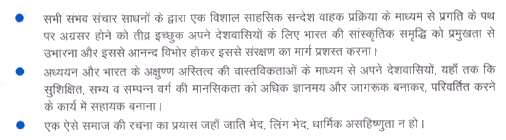 सभी संभव संचार साधनों के द्वारा एक विशाल साहसिक सन्देश वाहक प्रक्रिया के माध्यम से प्रगति के पथ
पर अग्रसर होने को तीव्र इच्छुक अपने देशवासियों के लिए भारत की सांस्कृतिक समृद्धि को प्रमुखता से
उभारना और इससे आनन्द विभोर होकर इससे संरक्षण का मार्ग प्रशस्त करना।
अध्ययन और भारत के अक्षुण्ण अस्तित्व की वास्तविकताओं के माध्यम से अपने देशवासियों, यहाँ तक कि
सुशिक्षित, सभ्य व सम्पन्न वर्ग की मानसिकता को अधिक ज्ञानमय और जागरूक बनाकर, परिवर्तित करने
के कार्य में सहायक बनाना।
एक ऐसे समाज की रचना का प्रयास जहाँ जाति भेद, लिंग भेद, धार्मिक असहिष्णुता न हो।